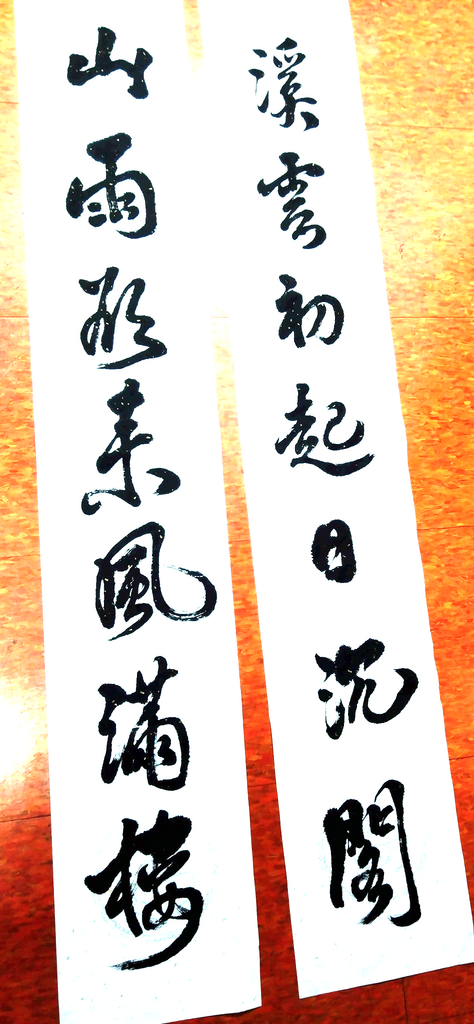 溪雲初起日沉閣
山雨欲來風滿樓